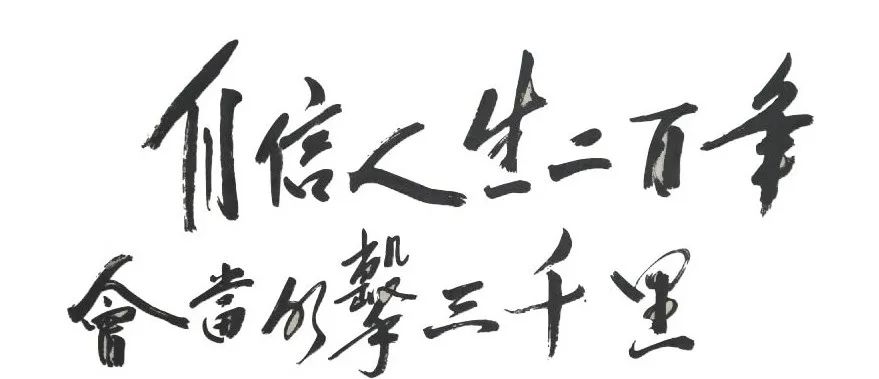 自信人生二百年
會當水擊三千里